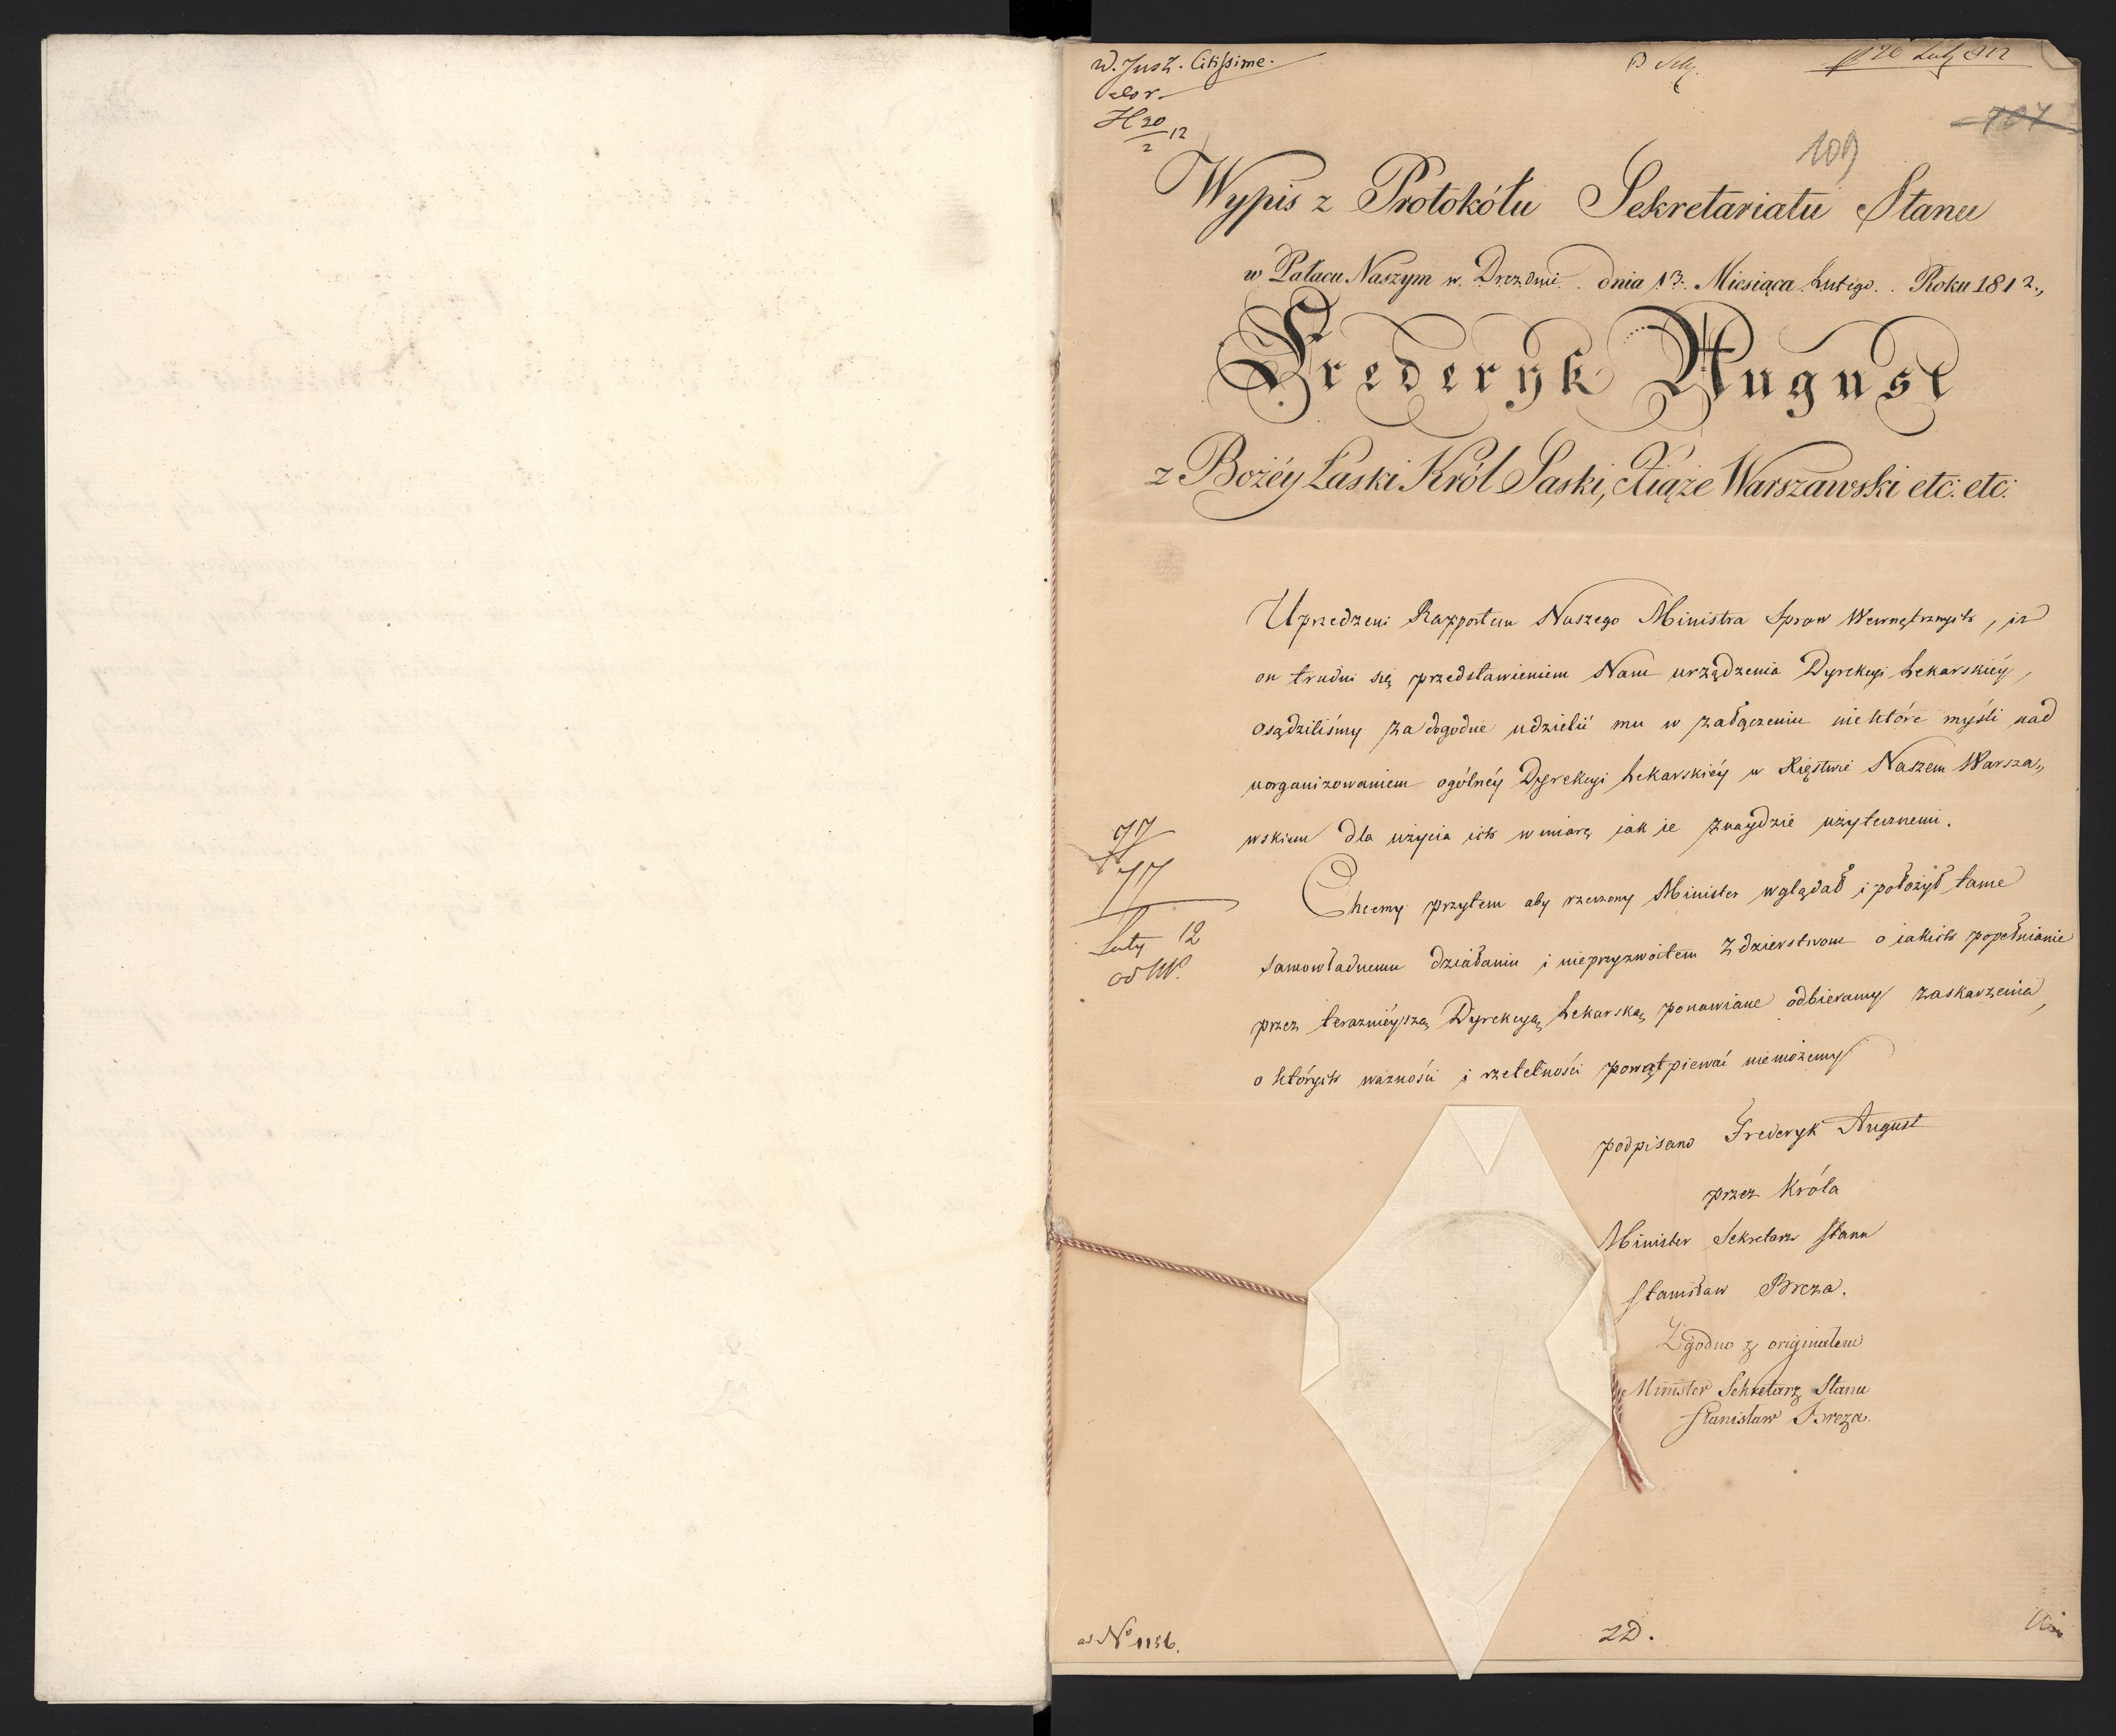 W. Just. Citissime.
20
2 12
20 Luty 812
107
109
Wypis z Protokółu Sekretariatu Stanu
w Pałacu Naszym w Dreznie dnia 13. Miesiąca Lutego. Roku 1812.,
Frederyk August
z Bożéy Łaski Król Saski, Xiąże Warszawski etc: etc:
Uprzedzeni Rapportem Naszego Ministra Spraw Wewnętrznych, iż
on trudni się przedstawieniem Nam urządzenia Dyrekcyi Lekarskiéy,
osądziliśmy za dogodne udzielić mu w załączeniu niektóre myśli nad
uorganizowaniem ogólnéy Dyrekcyi Lekarskiéy w Xięstwie Naszem Warsza„
wskiem dla użycia ich w miarę jak ie znaydzie użytecznemi.
Chcemy przytem aby rzeczony Minister wglądał i położył tamę
samowładnemu działaniu i nieprzyzwoitem Zdzierstwom o iakich popełnianie
przez teraznieyszą Dyrekcyą Lekarską ponawiane odbieramy zaskarżenia,
o których ważności i rzetelności powątpiewać niemożemy
77
77
Luty 12
podpisano Frederyk August
przez Króla
Minister Sekretarz Stanu
Stanisław Breza.
Zgodno z originałem
Minister Sekretarz Stanu
Stanisław Breza.
ad No 1156.
2D.